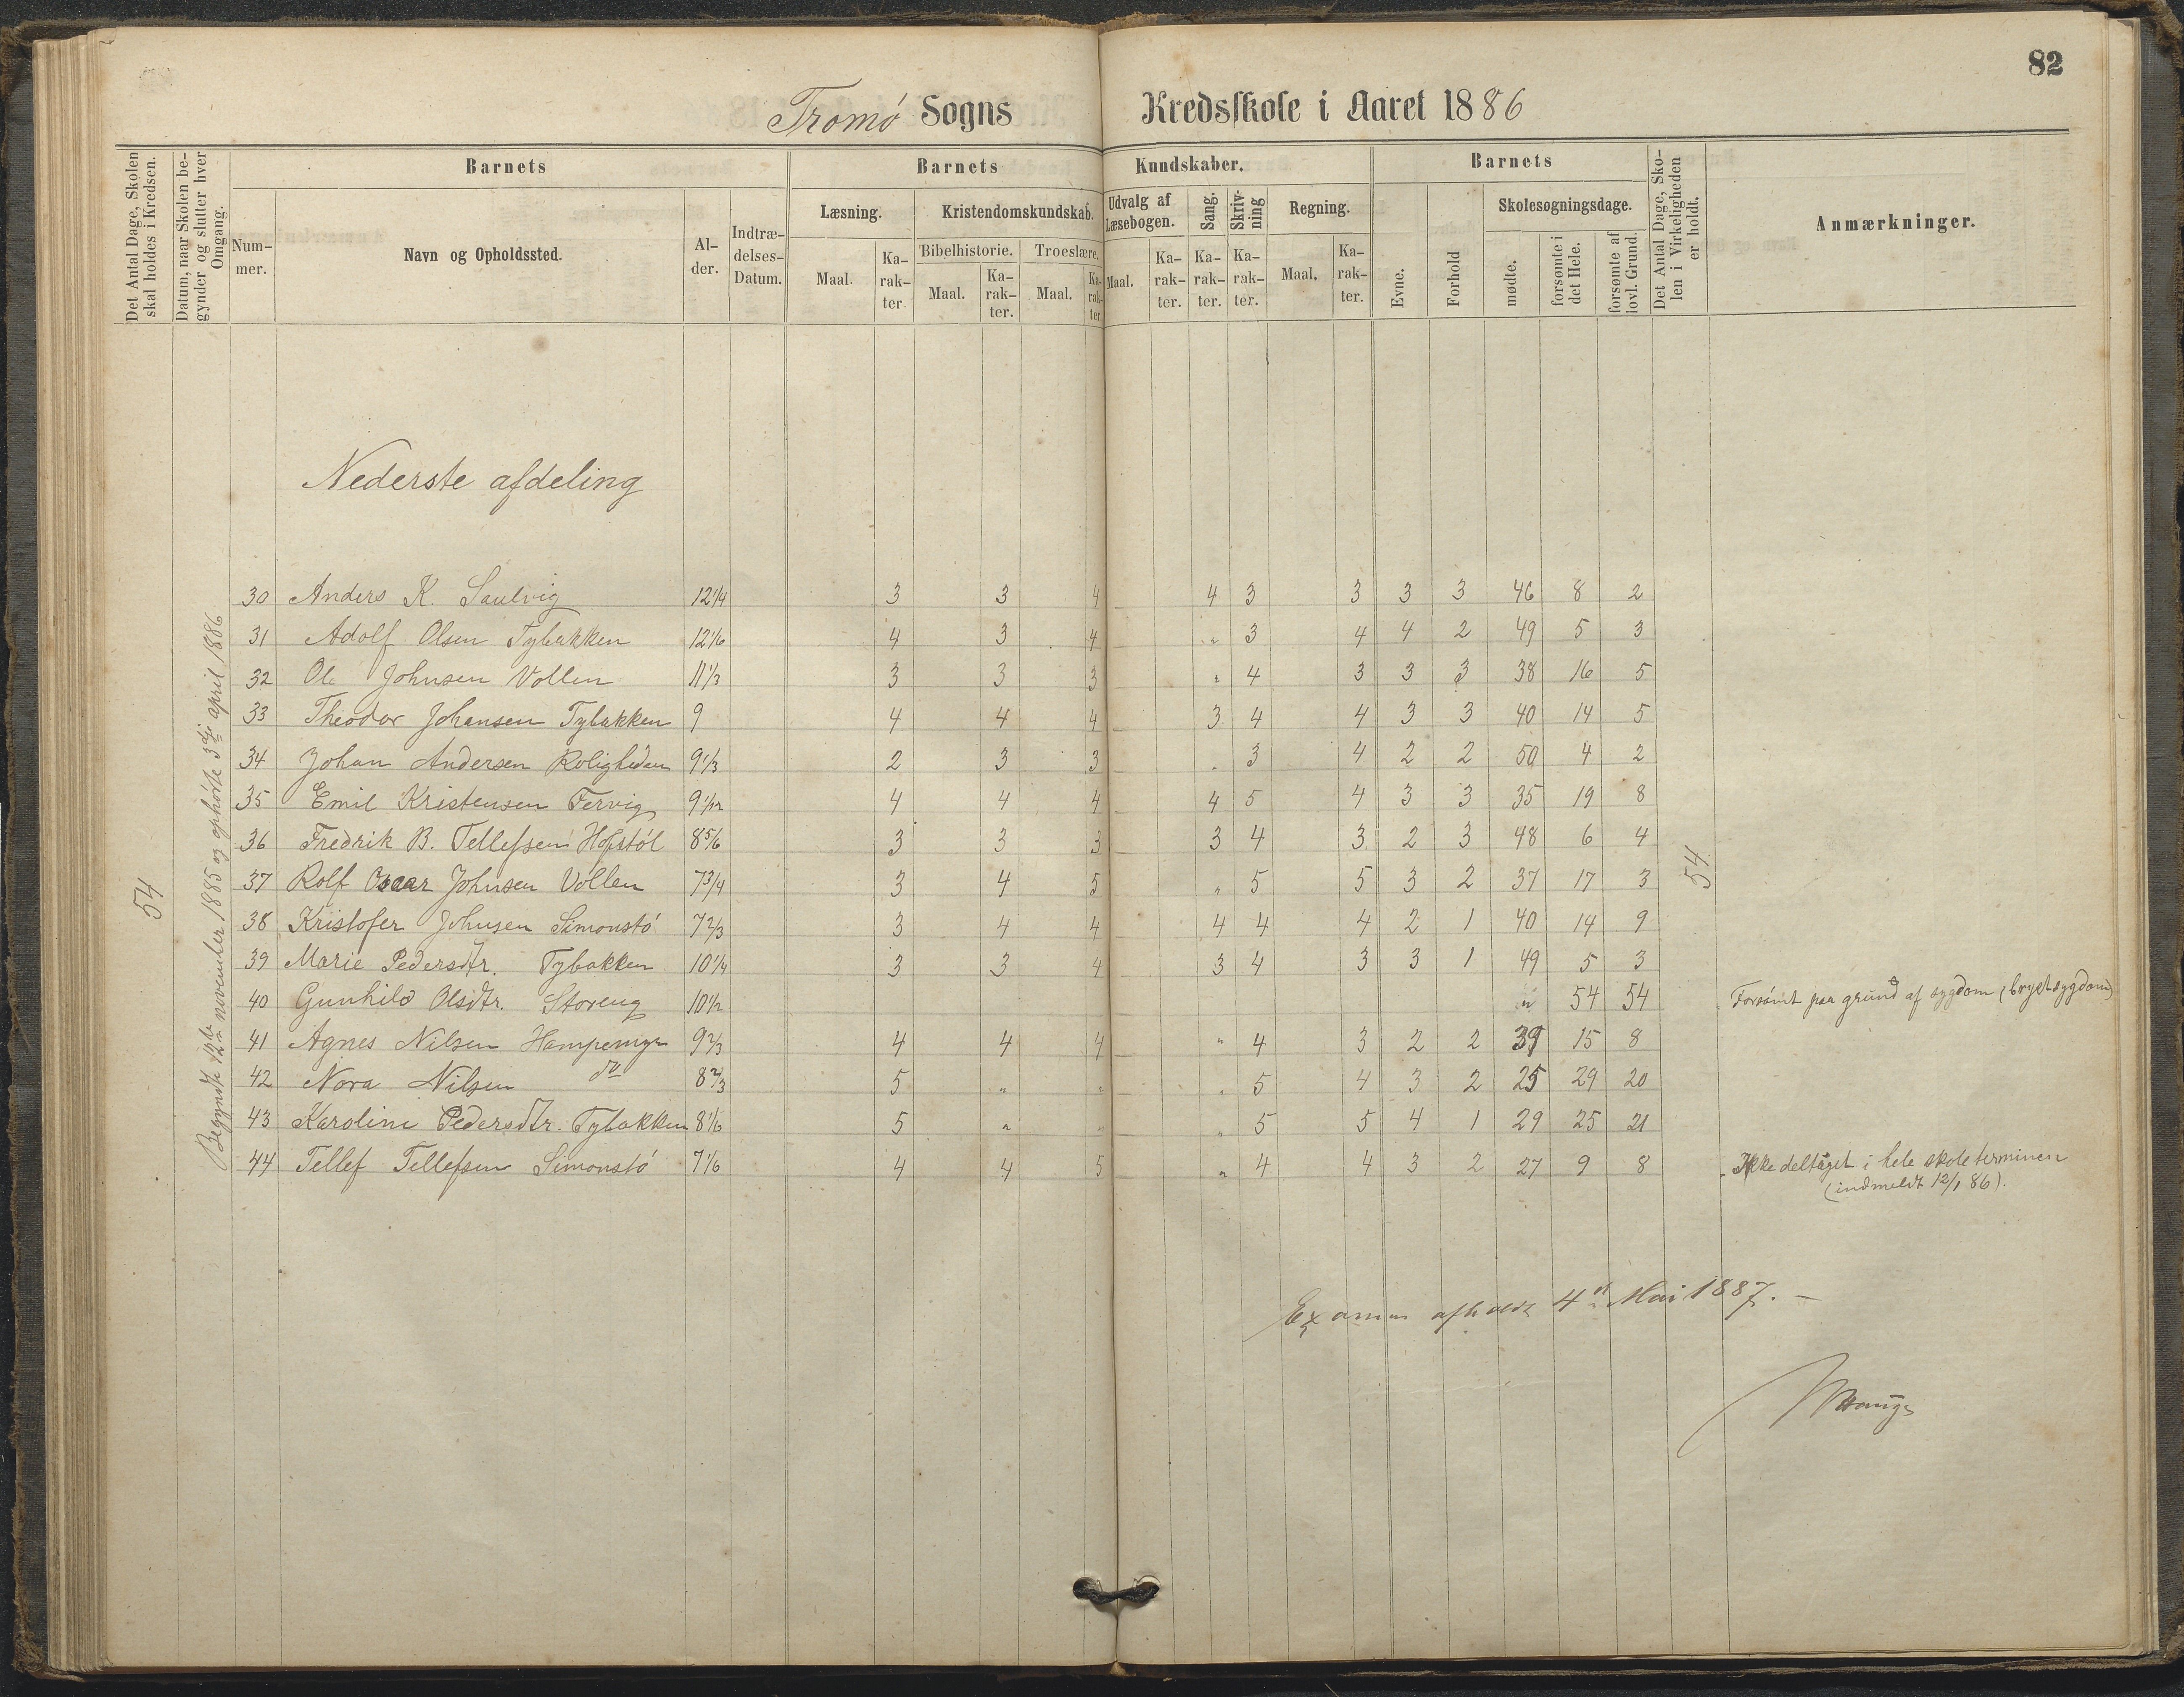 82
Tromø Sogns Kredsskole i Aaret 1886
Det Antal Dage, Skolen skal holdes i Kredsen.
Datum, naar Skolen begynder og slutter hver Omgang.
Barnets
Num-mer.
Navn og Opholdssted.
Al-der.
Indtræ-delses-Datum.
Barnets Kundskaber.
Læsning.
Maal. Ka-rak-ter.
Kristendomskundskab.
Bibelhistorie. Troeslære.
Maal. Ka-rak-ter. Maal. Ka-rak-ter.
Udvalg af Læsebogen.
Maal. Ka-rak-ter.
Sang. Ka-rak-ter.
Skriv-ning Ka-rak-ter.
Regning.
Maal. Ka-rak-ter.
Barnets
Evne. Forhold
Skolesøgningsdage.
mødte. forsømte i det Hele. forsømte af lovl. Grund.
Det Antal Dage, Sko-len i Virkeligheden er holdt.
Anmærkninger.
Nederste afdeling
54
Begyndt 12te november 1885 og ophørte 3die april 1886
30 Anders K. Saulvig 12 1/4 3 3 4 4 3 3 3 3 46 8 2
31 Adolf Olsen Tybakken 12 1/6 4 3 4 " 3 4 4 2 49 5 3
32 Ole Johnsen Vollen 11 1/3 3 3 3 " 4 3 3 3 38 16 5
33 Theodor Johansen Tybakken 9 4 4 4 3 4 4 3 3 40 14 5
34 Johan Andersen Roligheden 9 1/3 2 3 3 " 3 4 2 2 50 4 2
35 Emil Kristensen Fervig 9 1/12 4 4 4 4 5 4 3 3 35 19 8
36 Fredrik B. Tellefsen Hofstøl 8 5/6 3 3 3 3 4 3 2 3 48 6 4
37 Rolf Oscar Johnsen Vollen 7 3/4 3 4 5 " 5 5 3 2 37 17 3
38 Kristofer Johnsen Simonstø 7 2/3 3 4 4 4 4 4 2 1 40 14 9
39 Marie Pedersdtr. Tybakken 10 1/4 3 3 4 3 4 3 3 1 49 5 3
40 Gunhild Olsdtr. Storeng 10 1/2 " 54 54 Forsømt paa grund af sygdom (brystsygdom)
41 Agnes Nilsen Hampemyr 9 2/3 4 4 4 " 4 3 2 2 39 15 8
42 Nora Nilsen do 8 2/3 5 " " " 5 4 3 2 25 29 20
43 Karoline Pedersdtr. Tybakken 8 1/6 5 " " " 5 5 4 1 29 25 21
44 Tellef Tellefsen Simonstø 7 1/6 4 4 5 " 4 4 3 2 27 9 8 Ikke deltaget i hele skoleterminen
(indmeldt 12/1 86).
54
Examen afholdt 4de Mai 1887. –